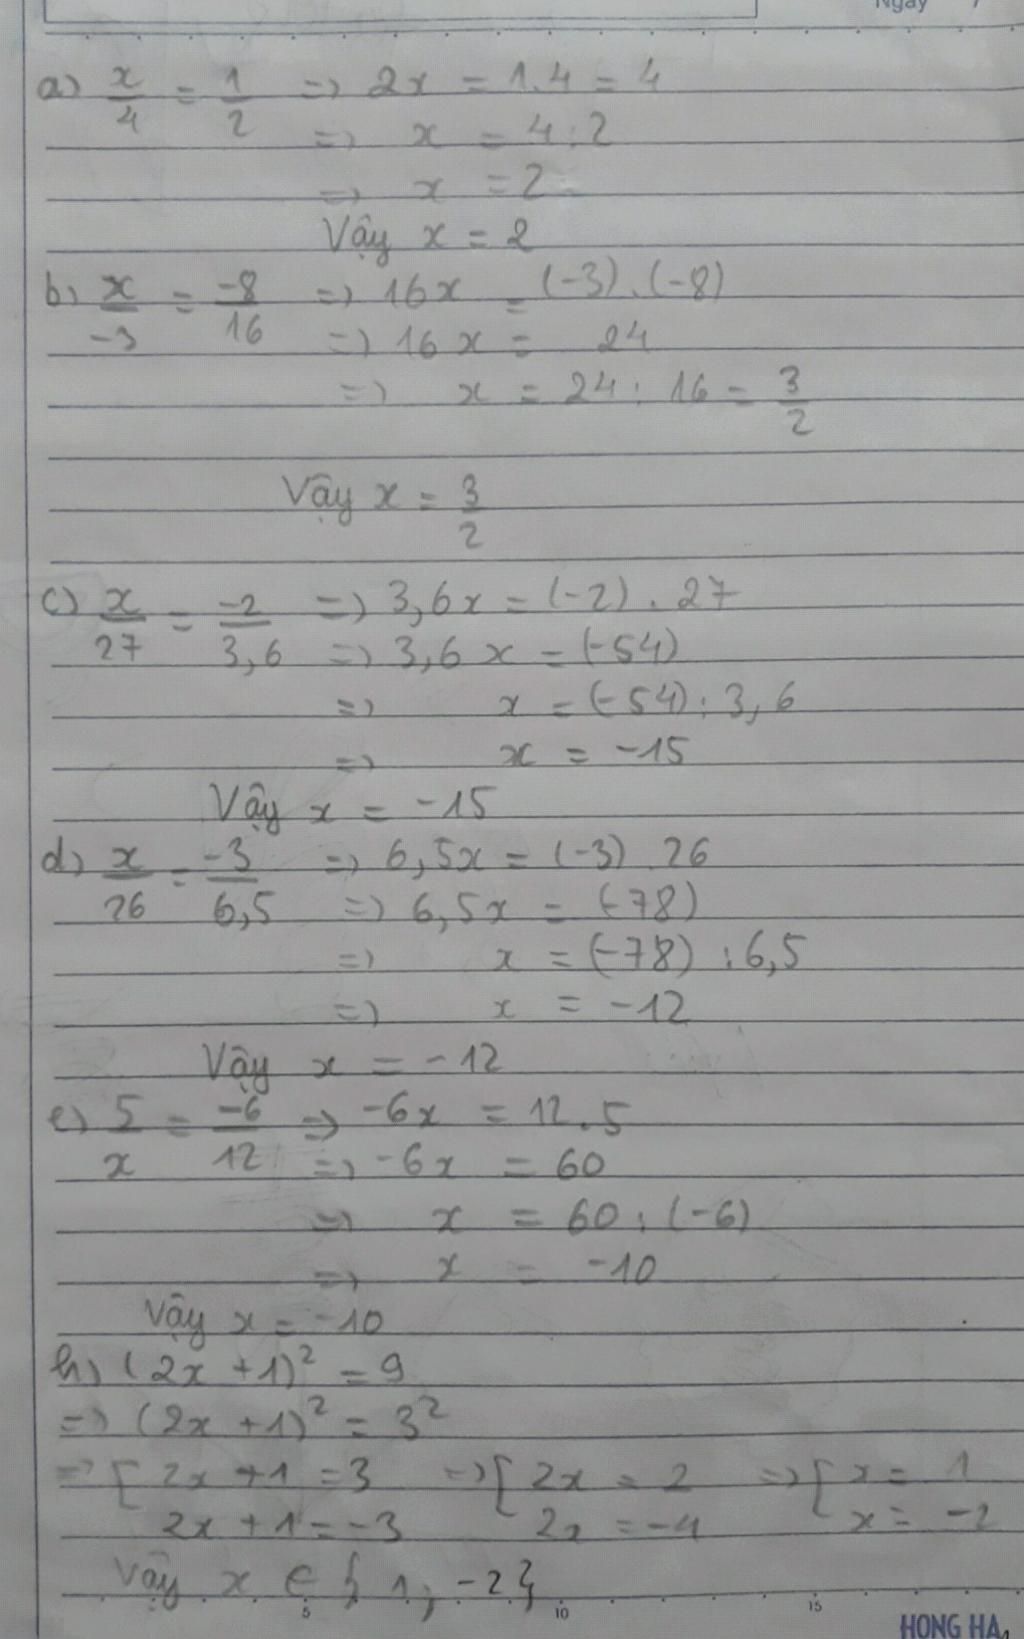 Ngày /
a) x/4 = 1/2 => 2x = 1.4 = 4
=> x = 4 : 2
=> x = 2
Vậy x = 2
b) x/-3 = -8/16 => 16x = (-3).(-8)
=> 16x = 24
=> x = 24 : 16 = 3/2
Vậy x = 3/2
c) x/27 = -2/3,6 => 3,6x = (-2) . 27
=> 3,6x = (-54)
=> x = (-54) : 3,6
=> x = -15
Vậy x = -15
d) x/26 = -3/6,5 => 6,5x = (-3) . 26
=> 6,5x = (-78)
=> x = (-78) : 6,5
=> x = -12
Vậy x = -12
e) 5/x = -6/12 => -6x = 12.5
=> -6x = 60
=> x = 60 : (-6)
=> x = -10
Vậy x = -10
h) (2x + 1)² = 9
=> (2x + 1)² = 3²
=> [ 2x + 1 = 3 => [ 2x = 2 => [ x = 1
2x + 1 = -3 2x = -4 x = -2
Vậy x ∈ { 1 ; -2 }
5 10 15
HONG HA